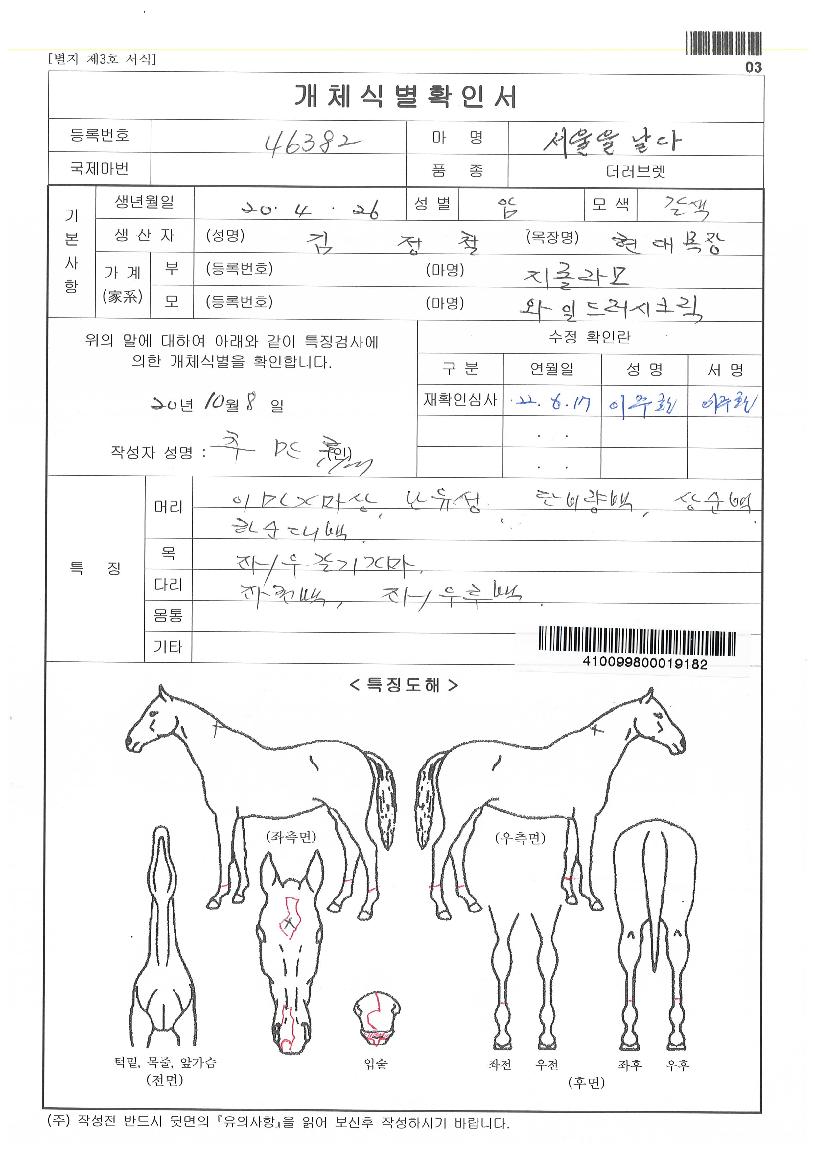 [별지 제3호 서식]
03
개체식별확인서
등록번호 46382 마 명 서울을 날다
국제마번 품 종 더러브렛
기본사항
생년월일 20. 4. 26 성별 암 모색 갈색
생산자 (성명) 김 정 철 (목장명) 현대목장
가계 (家系) 부 (등록번호) (마명) 지롤라모
모 (등록번호) (마명) 와일드러시크릭
위의 말에 대하여 아래와 같이 특징검사에
의한 개체식별을 확인합니다.
20년 10월 8일
작성자 성명 : (인)
수정 확인란
구분 연월일 성명 서명
재확인심사 22. 6. 17
. .
. .
특 징
머리 상순백
하순대백
목 좌/우 줄기가마.
다리
몸통
기타
410099800019182
< 특징도해 >
(좌측면) (우측면)
턱밑, 목줄, 앞가슴
(전면)
입술
좌전 우전 좌후 우후
(후면)
(주) 작성전 반드시 뒷면의 『유의사항』을 읽어 보신후 작성하시기 바랍니다.